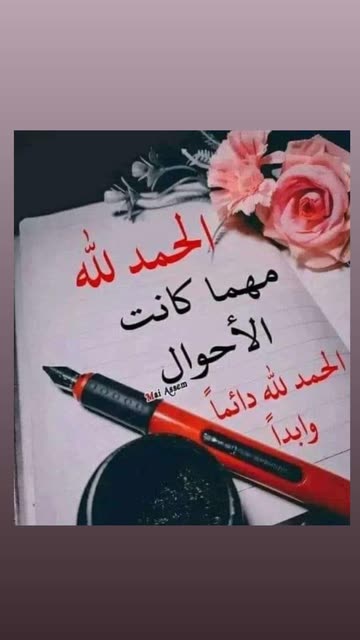 الحمد لله
مهما كانت
الأحوال
Mai Assem
الحمد لله دائماً
وابداً